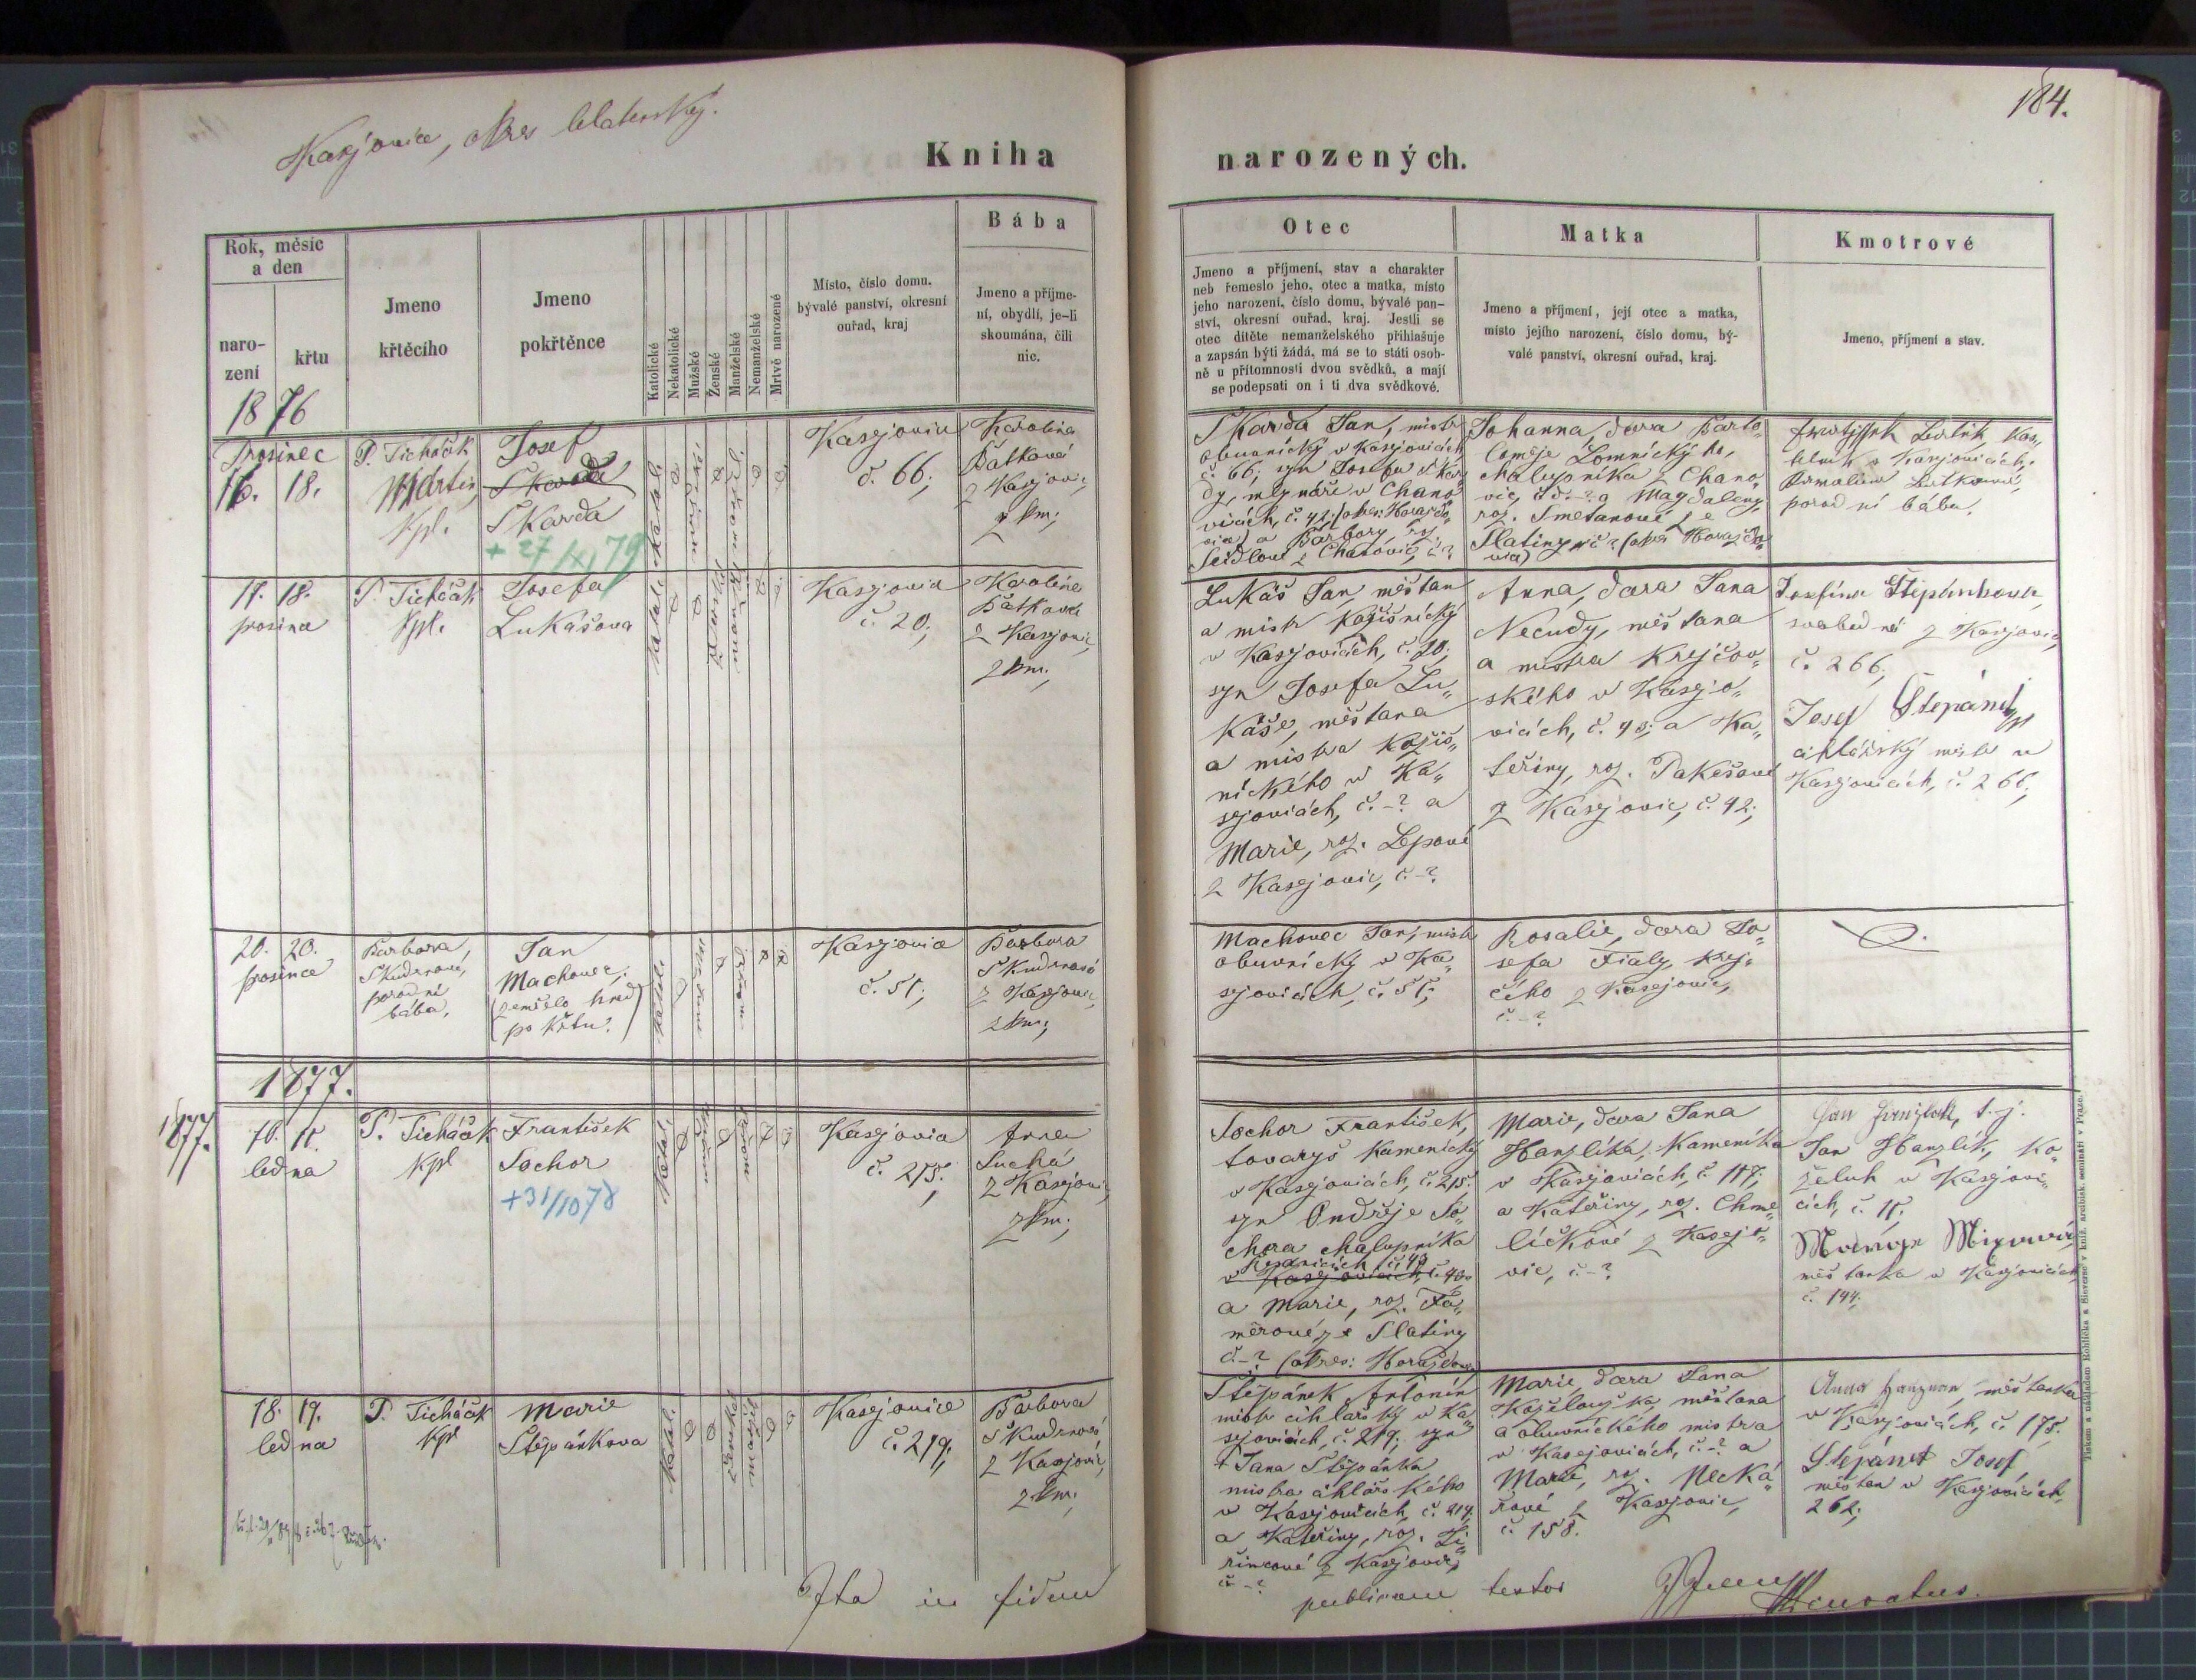 184.
Kasejovice, okres blatenský.
Kniha narozených.
Rok, měsíc
a den
naro-
zení
křtu
Jmeno
křtěcího
Jmeno
pokřtěnce
Katolické
Nekatolické
Mužské
Ženské
Manželské
Nemanželské
Mrtvě narozené
Místo, číslo domu,
bývalé panství, okresní
ouřad, kraj
Bába
Jmeno a příjme-
ní, obydlí, je-li
skoumána, čili
nic.
Otec
Jmeno a příjmení, stav a charakter
neb řemeslo jeho, otec a matka, místo
jeho narození, číslo domu, bývalé pan-
ství, okresní ouřad, kraj. Jestli se
otec dítěte nemanželského přihlašuje
a zapsán býti žádá, má se to státi osob-
ně u přítomnosti dvou svědků, a mají
se podepsati on i ti dva svědkové.
Matka
Jmeno a příjmení, její otec a matka,
místo jejího narození, číslo domu, bý-
valé panství, okresní ouřad, kraj.
Kmotrové
Jmeno, příjmení a stav.
1876
Prosinec
16. 18.
P. Ticháček
Martin
kpl.
Josef
Škarda
Škarda
+ 27/XI 79
Kasejovice
č. 66;
Karolina
Bátková
z Kasejovic,
zkm;
Škarda Jan, mistr
obuvnický v Kasejovicích
č. 66; syn Josefa Škar„
dy, mlynáře v Chano„
vicích, č. 42; (okres: Horažďo„
vice) a Barbory, roz.
Seidlové z Chanovic, č.-?
Johanna, dcera Barto„
loměje Lomnického,
chalupníka z Chano„
vic, č.-? a Magdaleny,
roz. Smetanové ze
Slatiny č.-? (okres Horažďo„
vice)
porodní bába.
17. 18.
prosince
P. Ticháček
kpl.
Josefa
Lukášova
Kasejovice
č. 20;
Karolina
Bátková
z Kasejovic,
zkm;
Lukáš Jan, měštan
a mistr kožišnický
v Kasejovicích, č. 20;
syn Josefa Lu„
káše, měštana
a mistra kožiš„
nického v Ka„
sejovicích, č.-? a
Marie, roz. Lepové
z Kasejovic, č.-?
Anna, dcera Jana
Necudy, měštana
a mistra krejčov„
ského v Kasejo„
vicích, č. 43; a Ka„
teřiny, roz. Pakešové
z Kasejovic, č. 42;
Josefina Štěpánkova
svobodná z Kasejovic,
č. 266;
Josef Štěpánek
cihlářský mistr v
Kasejovicích, č. 266;
20. 20.
prosince
Barbora
Škudrnová,
porodní
bába.
Jan
Machovec;
(zemřelo hned
po křtu.)
Kasejovice
č. 51;
Barbora
Škudrnová
z Kasejovic,
zkm;
Machovec Jan, mistr
obuvnický v Ka„
sejovicích, č. 51;
Rosalie, dcera Jo„
sefa Fialy, krej„
čího z Kasejovic,
č.-?
1877.
1877.
10. 11.
ledna
P. Ticháček
kpl
František
Sochor
+31/10 78
Kasejovice
č. 215;
Anna
Suchá
z Kasejovic,
zkm;
Sochor František,
tovaryš kamenický
v Kasejovicích, č. 215.
syn Ondřeje So„
chora chalupníka
v Kasejovicích, č. 40
a Marie, roz. Fa„
měrové ze Slatiny
č.-? (okres: Horažďovice
Marie, dcera Jana
Hanzlíka, kameníka
v Kasejovicích, č. 117;
a Kateřiny, roz. Chme„
líčkové z Kasejo„
vic, č.-?
Jan Hanzlik, t. j.
Jan Hanzlík, ko„
želuh v Kasejovi„
cích, č. 11;
měštanka v Kasejovicích
č. 144;
18. 19.
ledna
P. Ticháček
kpl
Marie
Štěpánkova
Kasejovice
č. 219;
Barbora
Škudrnová
z Kasejovic,
zkm;
Štěpánek Antonín
mistr cihlářský v Ka„
sejovicích, č. 219; syn
† Jana Štěpánka
mistra cihlářského
v Kasejovicích, č. 219
a Kateřiny, roz. Ji„
řincové z Kasejovic,
č.-?
Marie, dcera Jana
Koželuský, měštana
a obuvnického mistra
v Kasejovicích, č.-? a
Marie, roz. Necká„
řové z Kasejovic,
č. 158.
měštanka
v Kasejovicích, č. 175;
Štěpánek Josef
měštan v Kasejovicích,
262;
Ita in fidem
publicam testor
Tiskem a nákladem Rohlíčka a Sieverse v kníž. arcibisk. semináři v Praze.